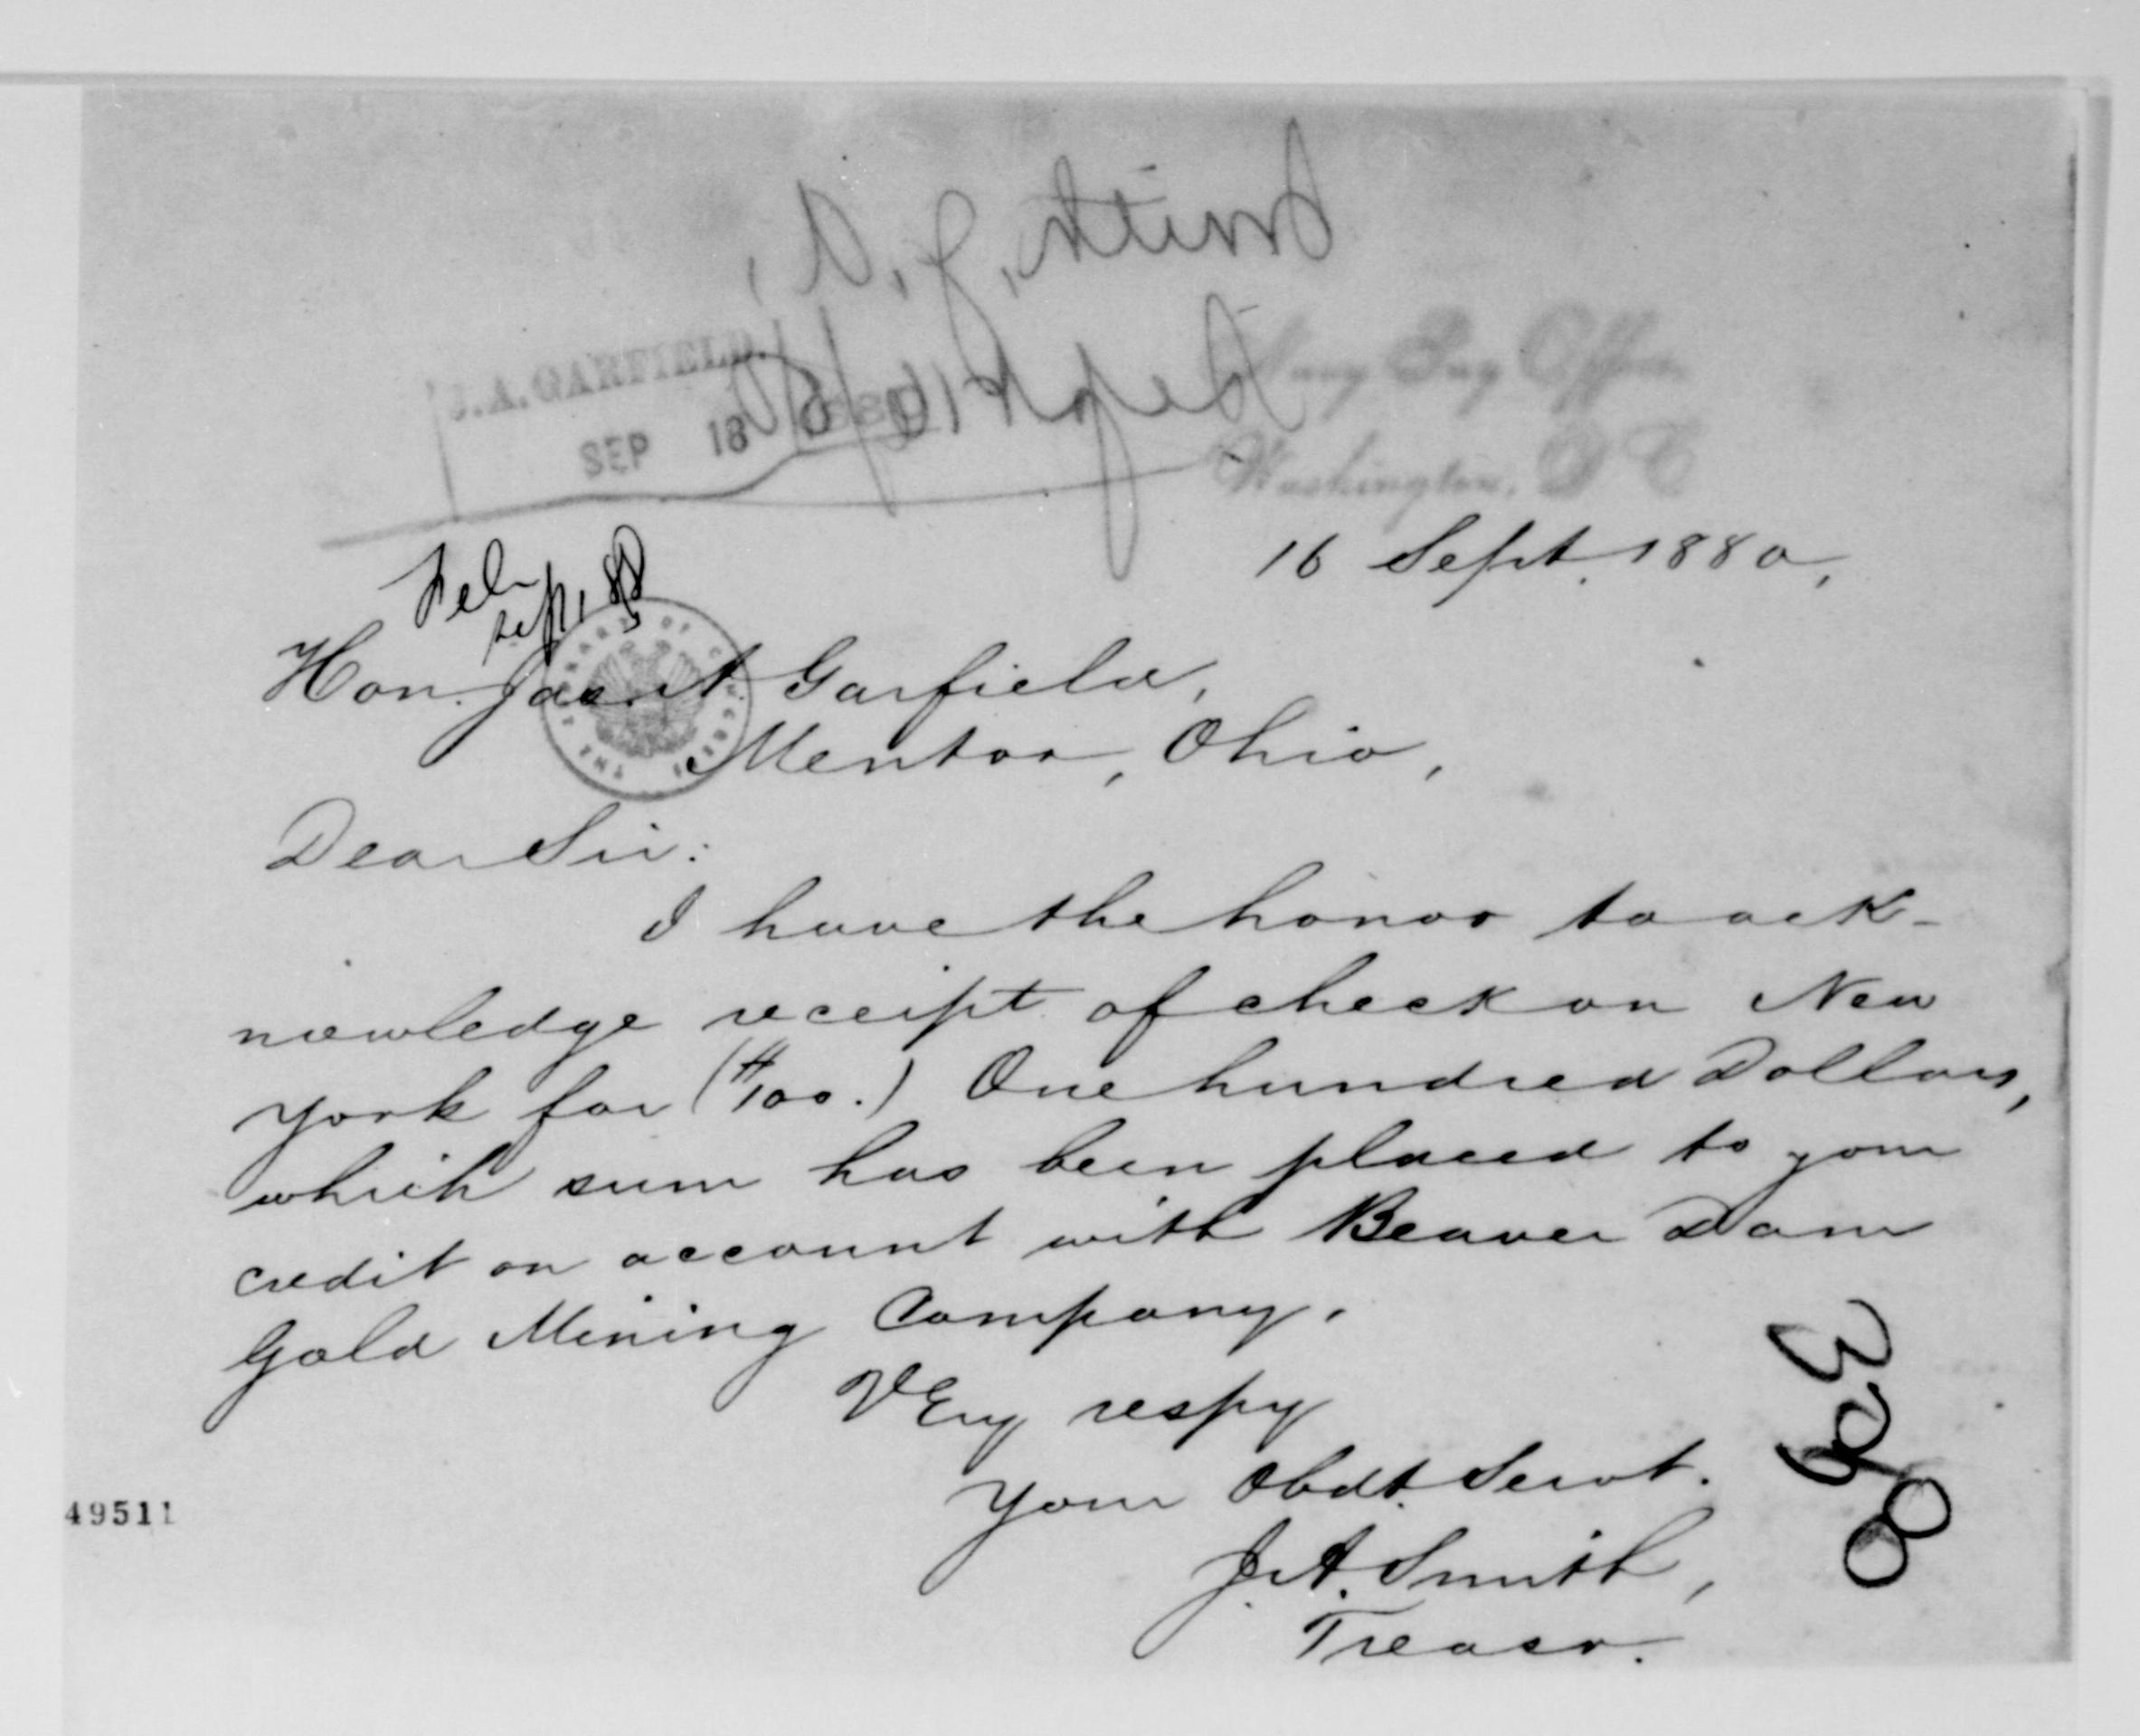 Smith, J. A.,
Sept 16/80
J. A. GARFIELD.
SEP 18 1880
Navy Pay Office
Washington, D C
16 Sept. 1880,
Hon. Jas. A. Garfield,
Mentor, Ohio,
Dear Sir:
I have the honor to ack-
nowledge receipt of check on New
York for ($100.) One hundred Dollars,
which sum has been placed to your
credit on account with Beaver Dam
Gold Mining Company.
VEry respy
Your Obdt. Servt.
J. A. Smith,
Treasr.
49511